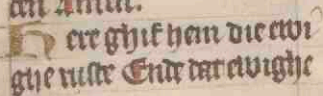 den Amen.
Here ghif hem die ewi
ghe ruste Ende dat ewighe